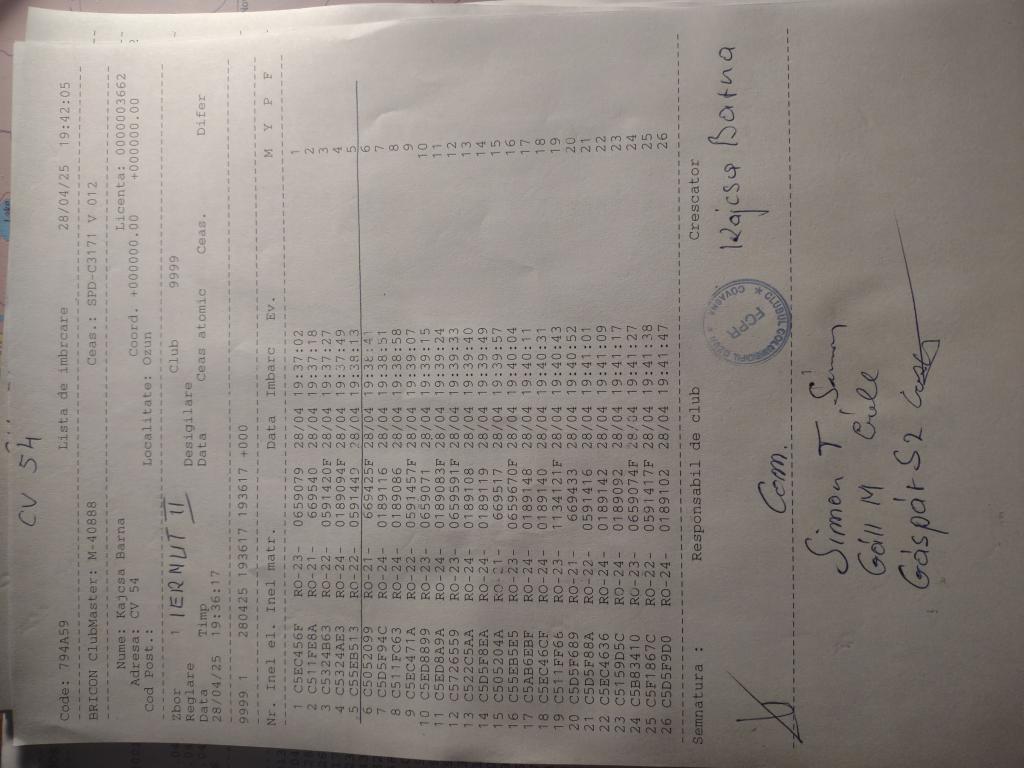 CV 54
Code: 794A59 Lista de imbrcare 28/04/25 19:42:05
BRICON ClubMaster: M-40888 Ceas.: SPD-C3171 V 012
Nume: Kajcsa Barna Licenta: 0000003662
Adresa: CV 54 Coord. +000000.00 +000000.00
Cod Post.: Localitate: Ozun
Zbor 1 IERNUT II Club 9999
Reglare Desigilare
Data Timp Data Ceas atomic Ceas. Difer
28/04/25 19:36:17
9999 1 280425 193617 193617 +000
Nr. Inel el. Inel matr. Data Imbarc Ev. M Y P F
1 C5EC456F RO-23- 0659079 28/04 19:37:02 1
2 C511FE8A RO-21 669540 28/04 19:37:18 2
3 C5324B63 RO-22- 0591420F 28/04 19:37:27 3
4 C5324AE3 RO-24- 0189094F 28/04 19:37:49 4
5 C55EB513 RO-22- 0591449 28/04 19:38:13 5
6 C5052099 RO-21- 669425F 28/04 19:38:41 6
7 C5D5F94C RO-24- 0189116 28/04 19:38:51 7
8 C511FC63 RO-24- 0189086 28/04 19:38:58 8
9 C5EC471A RO-22- 0591457F 28/04 19:39:07 9
10 C5ED8899 RO-23- 0659071 28/04 19:39:15 10
11 C5ED8A9A RO-24- 0189083F 28/04 19:39:24 11
12 C5726559 RO-23- 0659591F 28/04 19:39:33 12
13 C522C5AA RO-24- 0189108 28/04 19:39:40 13
14 C5D5F8EA RO-24- 0189119 28/04 19:39:49 14
15 C505204A RO-21- 669517 28/04 19:39:57 15
16 C55EB5E5 RO-23- 0659670F 28/04 19:40:04 16
17 C5AB6EBF RO-24- 0189148 28/04 19:40:11 17
18 C5EC46CF RO-24- 0189140 28/04 19:40:31 18
19 C511FF66 RO-23- 1134121F 28/04 19:40:43 19
20 C5D5F689 RO-21- 669433 28/04 19:40:52 20
21 C5D5F88A RO-22- 0591416 28/04 19:41:01 21
22 C5EC4636 RO-24- 0189142 28/04 19:41:09 22
23 C5159D5C RO-24- 0189092 28/04 19:41:17 23
24 C5B83410 RO-23- 0659074F 28/04 19:41:27 24
25 C5F1867C RO-22- 0591417F 28/04 19:41:38 25
26 C5D5F9D0 RO-24- 0189102 28/04 19:41:47 26
Semnatura : Responsabil de club Crescator
Kajcsa Barna
FCPR
COVASNA
Com.
Simon T
Gáll M
Gáspár S2